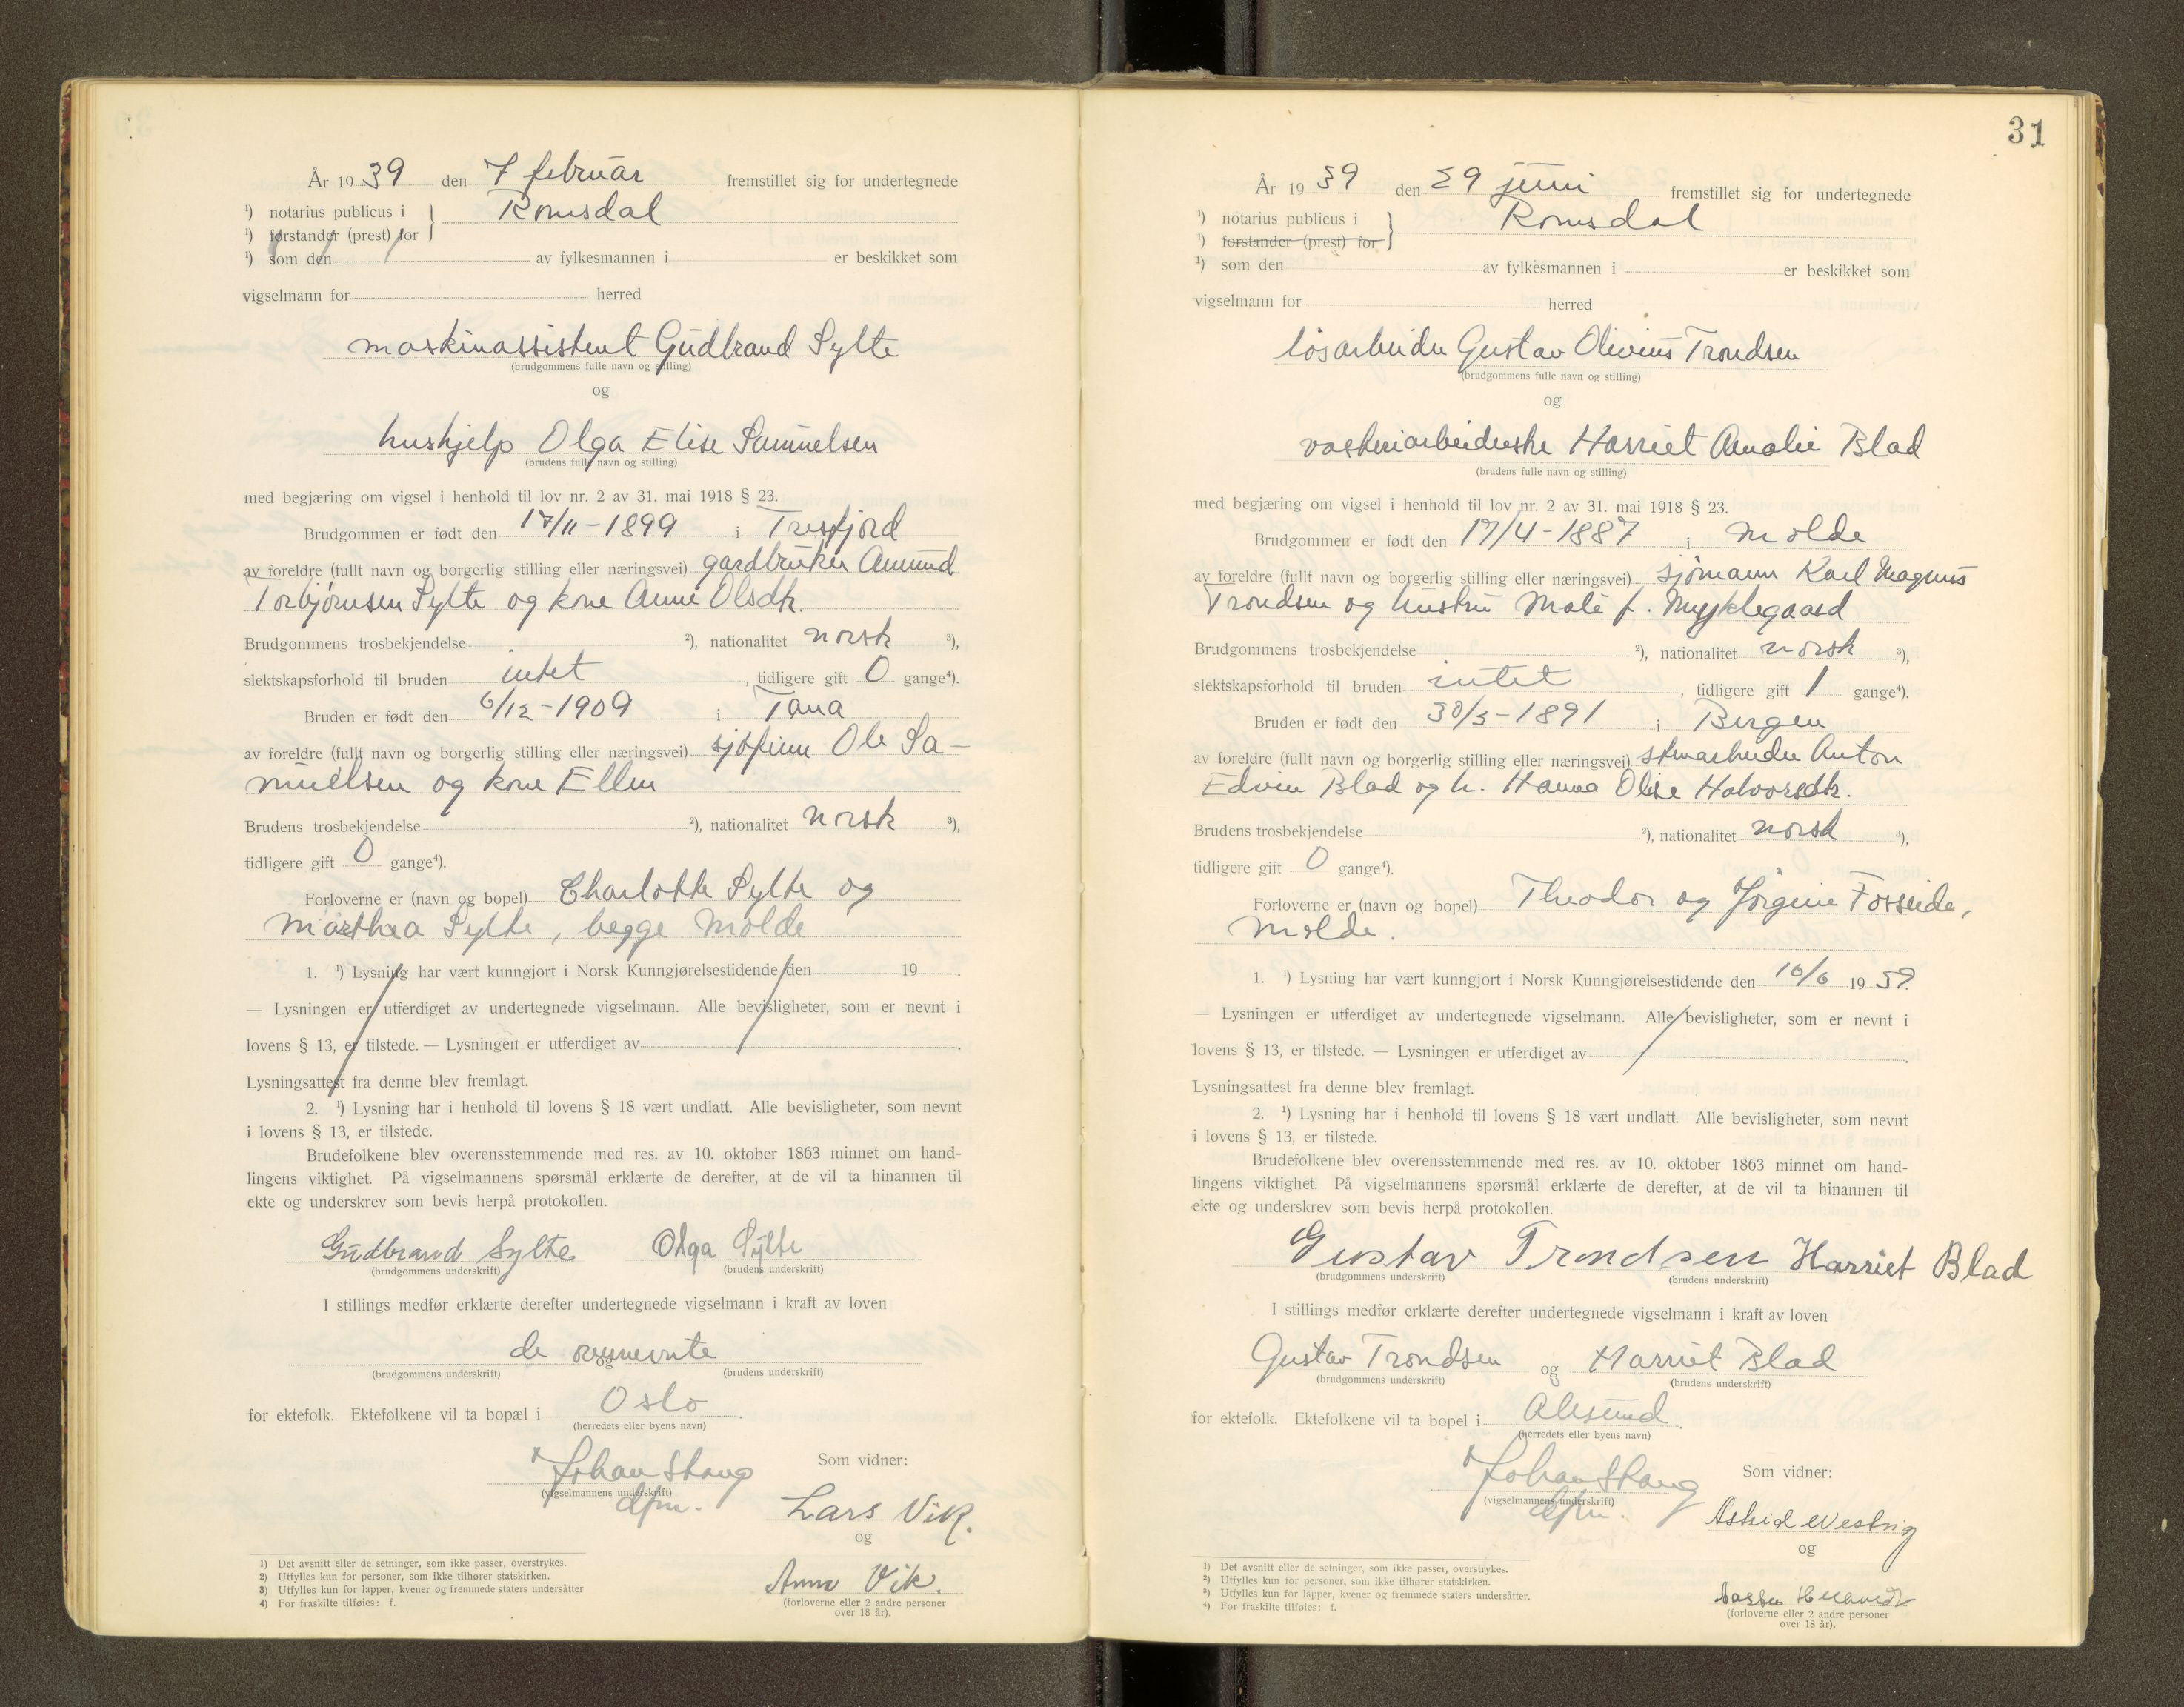 År 19 39 den 7 februar fremstillet sig for undertegnede
¹) notarius publicus i } Romsdal
¹) forstander (prest) for
¹) som den av fylkesmannen i er beskikket som
vigselmann for herred
maskinassistent Gudbrand Sylte
(brudgommens fulle navn og stilling)
og
hushjelp Olga Elise Samuelsen
(brudens fulle navn og stilling)
med begjæring om vigsel i henhold til lov nr. 2 av 31. mai 1918 § 23.
Brudgommen er født den 17/11-1899 i Tresfjord
av foreldre (fullt navn og borgerlig stilling eller næringsvei) gardbruker Amund
Torbjørnsen Sylte og kone Anne Olsdtr.
Brudgommens trosbekjendelse ²), nationalitet norsk ³),
slektskapsforhold til bruden intet , tidligere gift 0 gange⁴).
Bruden er født den 6/12-1909 i Tana
av foreldre (fullt navn og borgerlig stilling eller næringsvei) sjøfinn Ole Sa-
muelsen og kone Ellen
Brudens trosbekjendelse ²), nationalitet norsk ³),
tidligere gift 0 gange⁴).
Forloverne er (navn og bopel) Charlotte Sylte og
Marthea Sylte, begge Molde
1. ¹) Lysning har vært kunngjort i Norsk Kunngjørelsestidende den 19 .
— Lysningen er utferdiget av undertegnede vigselmann. Alle bevisligheter, som er nevnt i
lovens § 13, er tilstede. — Lysningen er utferdiget av .
Lysningsattest fra denne blev fremlagt.
2. ¹) Lysning har i henhold til lovens § 18 vært undlatt. Alle bevisligheter, som nevnt
i lovens § 13, er tilstede.
Brudefolkene blev overensstemmende med res. av 10. oktober 1863 minnet om hand-
lingens viktighet. På vigselmannens spørsmål erklærte de derefter, at de vil ta hinannen til
ekte og underskrev som bevis herpå protokollen.
Gudbrand Sylte Olga Sylte
(brudgommens underskrift) (brudens underskrift)
I stillings medfør erklærte derefter undertegnede vigselmann i kraft av loven
de ovennevnte
og
(brudgommens underskrift) (brudens underskrift)
for ektefolk. Ektefolkene vil ta bopæl i Oslo .
(herredets eller byens navn)
Johan Stang Som vidner:
(vigselmannens underskrift)
dfm.
Lars Vik.
og
Anna Vik.
(forloverne eller 2 andre personer
over 18 år).
1) Det avsnitt eller de setninger, som ikke passer, overstrykes.
2) Utfylles kun for personer, som ikke tilhører statskirken.
3) Utfylles kun for lapper, kvener og fremmede staters undersåtter
4) For fraskilte tilføies: f.
31
År 19 39 den 29 juni fremstillet sig for undertegnede
¹) notarius publicus i } Romsdal
¹) forstander (prest) for
¹) som den av fylkesmannen i er beskikket som
vigselmann for herred
løsarbeider Gustav Olivius Trondsen
(brudgommens fulle navn og stilling)
og
vaskeriarbeiderske Harriet Amalie Blad
(brudens fulle navn og stilling)
med begjæring om vigsel i henhold til lov nr. 2 av 31. mai 1918 § 23.
Brudgommen er født den 17/4-1887 i Molde
av foreldre (fullt navn og borgerlig stilling eller næringsvei) sjømann Karl Magnus
Trondsen og hustru Mali f. Myklegaard
Brudgommens trosbekjendelse ²), nationalitet norsk ³),
slektskapsforhold til bruden intet , tidligere gift 1 gange⁴).
Bruden er født den 30/3-1891 i Bergen
av foreldre (fullt navn og borgerlig stilling eller næringsvei) stenarbeider Anton
Edvin Blad og h. Hanna Olise Halvorsdtr.
Brudens trosbekjendelse ²), nationalitet norsk ³),
tidligere gift 0 gange⁴).
Forloverne er (navn og bopel) Theodor og Jørgine Forseide,
Molde.
1. ¹) Lysning har vært kunngjort i Norsk Kunngjørelsestidende den 10/6 19 39.
— Lysningen er utferdiget av undertegnede vigselmann. Alle bevisligheter, som er nevnt i
lovens § 13, er tilstede. — Lysningen er utferdiget av .
Lysningsattest fra denne blev fremlagt.
2. ¹) Lysning har i henhold til lovens § 18 vært undlatt. Alle bevisligheter, som nevnt
i lovens § 13, er tilstede.
Brudefolkene blev overensstemmende med res. av 10. oktober 1863 minnet om hand-
lingens viktighet. På vigselmannens spørsmål erklærte de derefter, at de vil ta hinannen til
ekte og underskrev som bevis herpå protokollen.
Gustav Trondsen Harriet Blad
(brudgommens underskrift) (brudens underskrift)
I stillings medfør erklærte derefter undertegnede vigselmann i kraft av loven
Gustav Trondsen og Harriet Blad
(brudgommens underskrift) (brudens underskrift)
for ektefolk. Ektefolkene vil ta bopel i Ålesund .
(herredets eller byens navn)
Johan Stang Som vidner:
(vigselmannens underskrift)
dfm.
Astrid Westvig
og
(forloverne eller 2 andre personer
over 18 år).
1) Det avsnitt eller de setninger, som ikke passer, overstrykes.
2) Utfylles kun for personer, som ikke tilhører statskirken.
3) Utfylles kun for lapper, kvener og fremmede staters undersåtter.
4) For fraskilte tilføies: f.